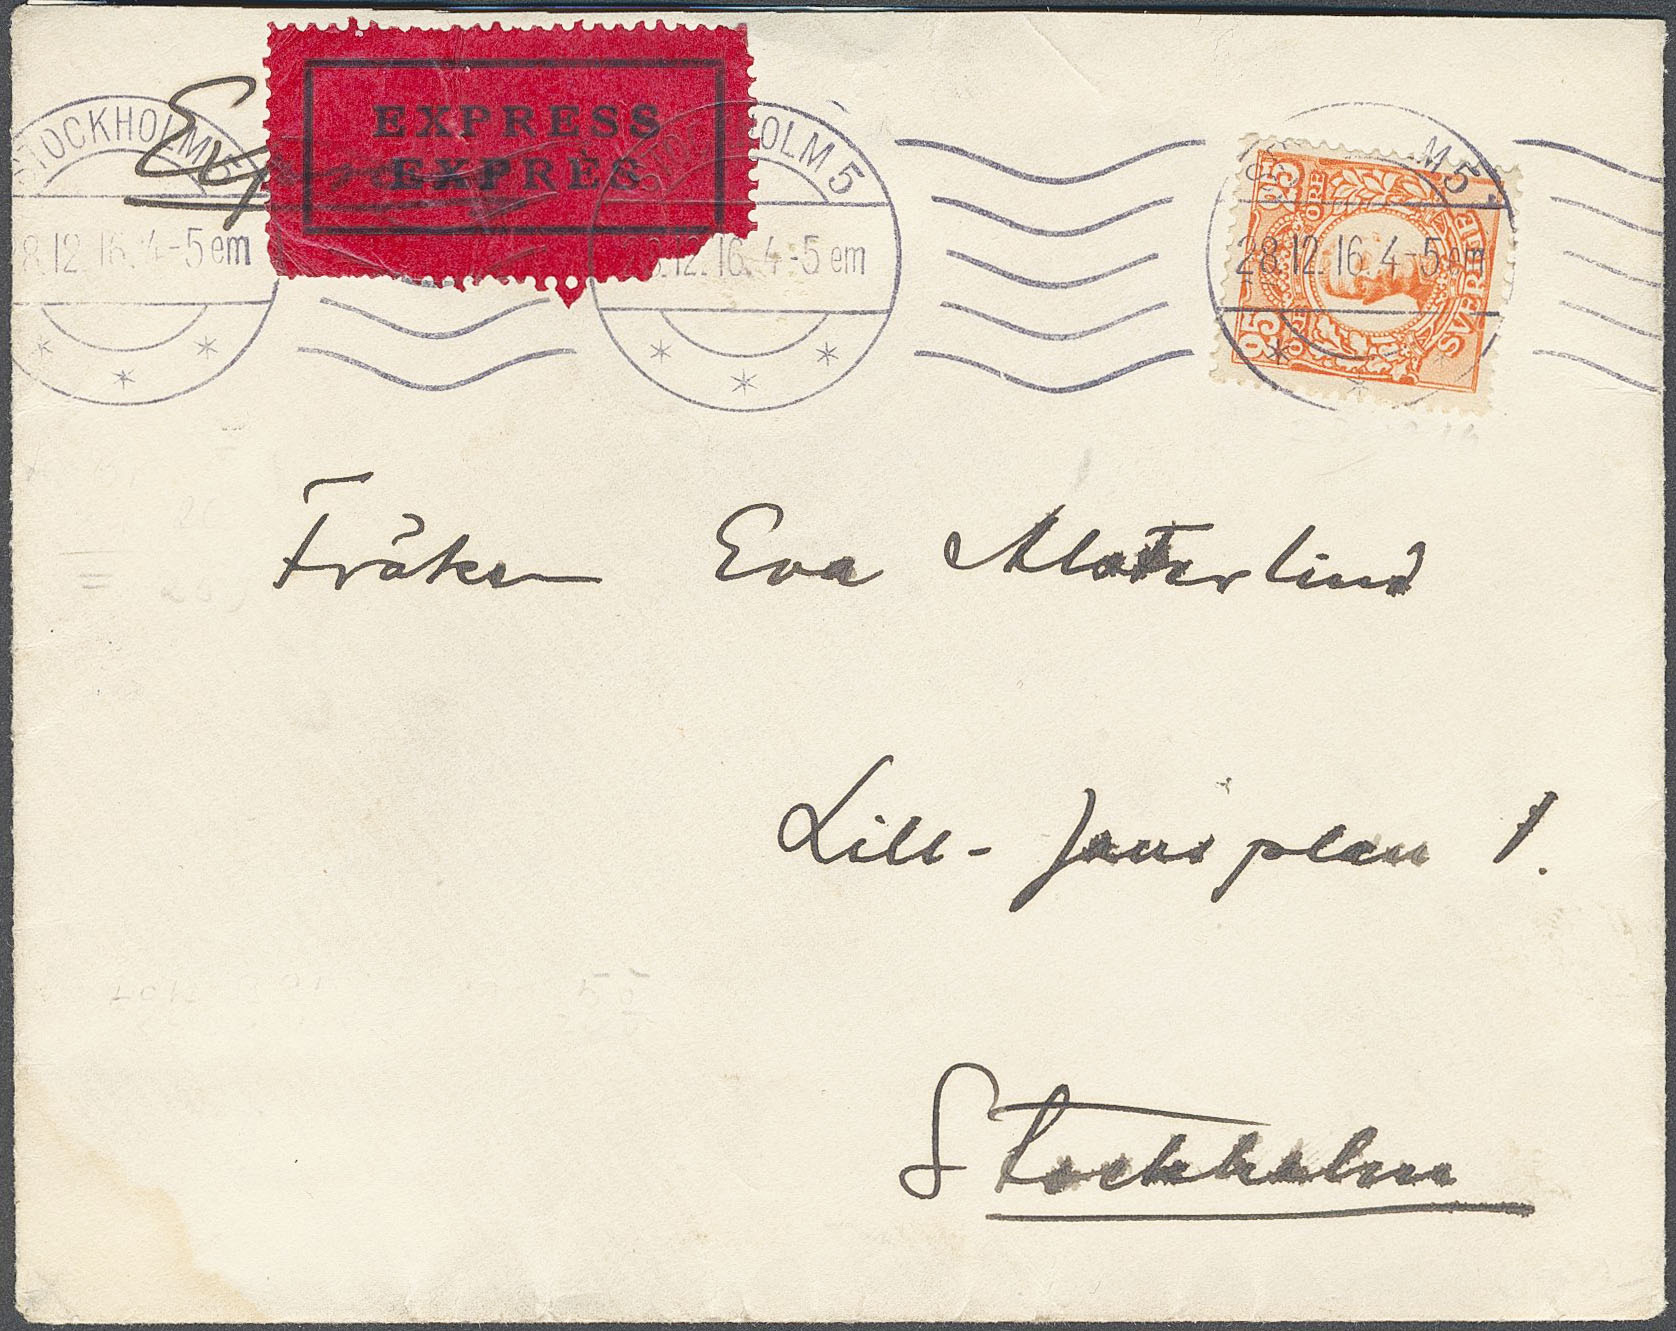 STOCKHOLM 5
28.12.16. 4-5 em
EXPRESS
EXPRÈS
STOCKHOLM 5
28.12.16. 4-5 em
M 5
28.12.16. 4-5 em
25 ÖRE
25
SVERIGE
Fröken Eva
Lill-Jansplan 1.
Stockholm